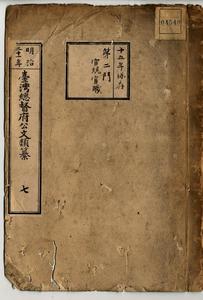 十五年保存
第二門
官規官職
明治
三十一年
臺灣總督府公文類纂
七